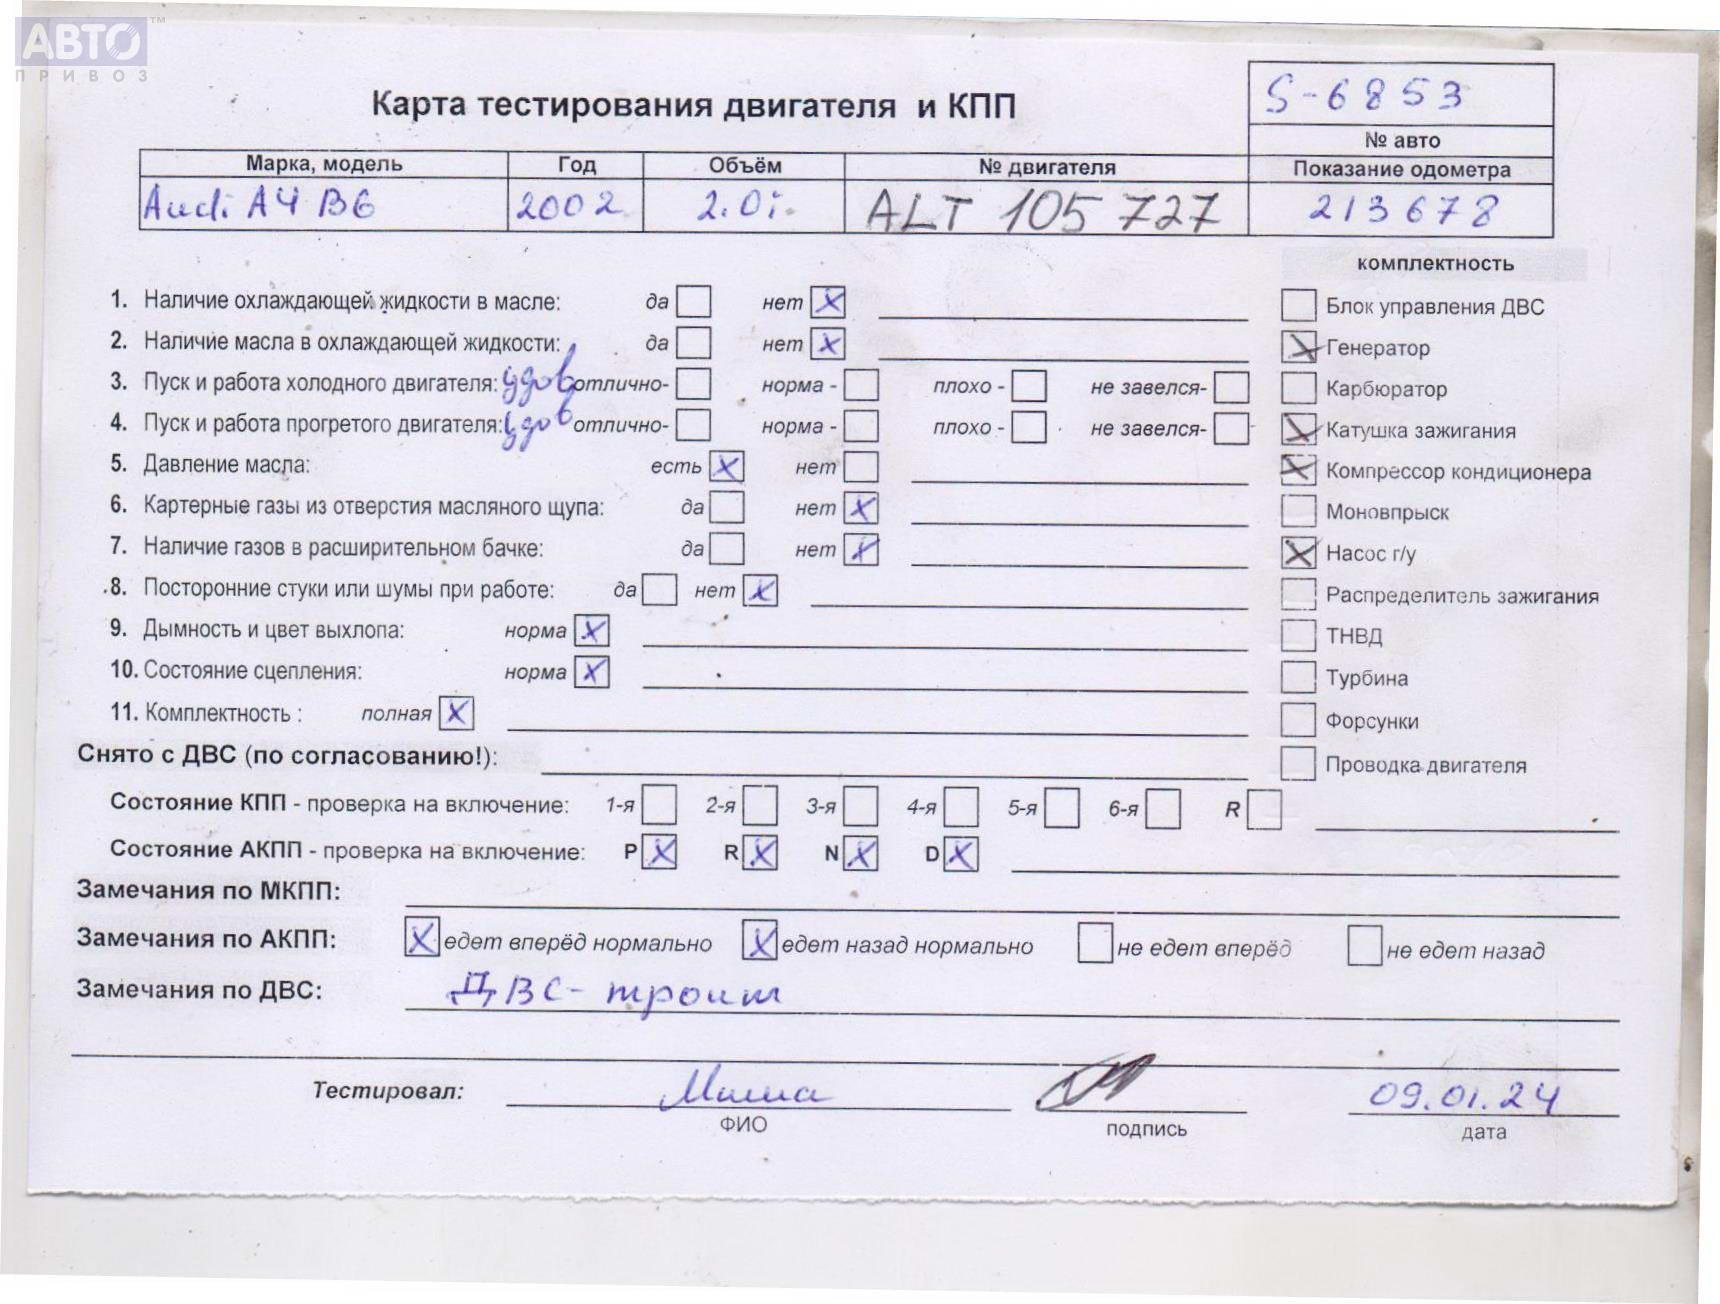 АВТО™
ПРИВОЗ
S-6853
Карта тестирования двигателя и КПП
№ авто
Марка, модель Год Объём № двигателя Показание одометра
Audi A4 B6 2002 2.0i ALT 105 727 213678
комплектность
1. Наличие охлаждающей жидкости в масле: да нет X
Блок управления ДВС
2. Наличие масла в охлаждающей жидкости: да нет X
X Генератор
3. Пуск и работа холодного двигателя: удов отлично- норма - плохо - не завелся-
Карбюратор
4. Пуск и работа прогретого двигателя: удов отлично- норма - плохо - не завелся-
X Катушка зажигания
5. Давление масла: есть X нет
X Компрессор кондиционера
6. Картерные газы из отверстия масляного щупа: да нет X
Моновпрыск
7. Наличие газов в расширительном бачке: да нет X
X Насос г/у
8. Посторонние стуки или шумы при работе: да нет X
Распределитель зажигания
9. Дымность и цвет выхлопа: норма X
ТНВД
10. Состояние сцепления: норма X
Турбина
11. Комплектность : полная X
Форсунки
Снято с ДВС (по согласованию!):
Проводка двигателя
Состояние КПП - проверка на включение: 1-я 2-я 3-я 4-я 5-я 6-я R
Состояние АКПП - проверка на включение: P X R X N X D X
Замечания по МКПП:
Замечания по АКПП: X едет вперёд нормально X едет назад нормально не едет вперёд не едет назад
Замечания по ДВС: ДВС - троит
Тестировал: Миша 09.01.24
ФИО подпись дата